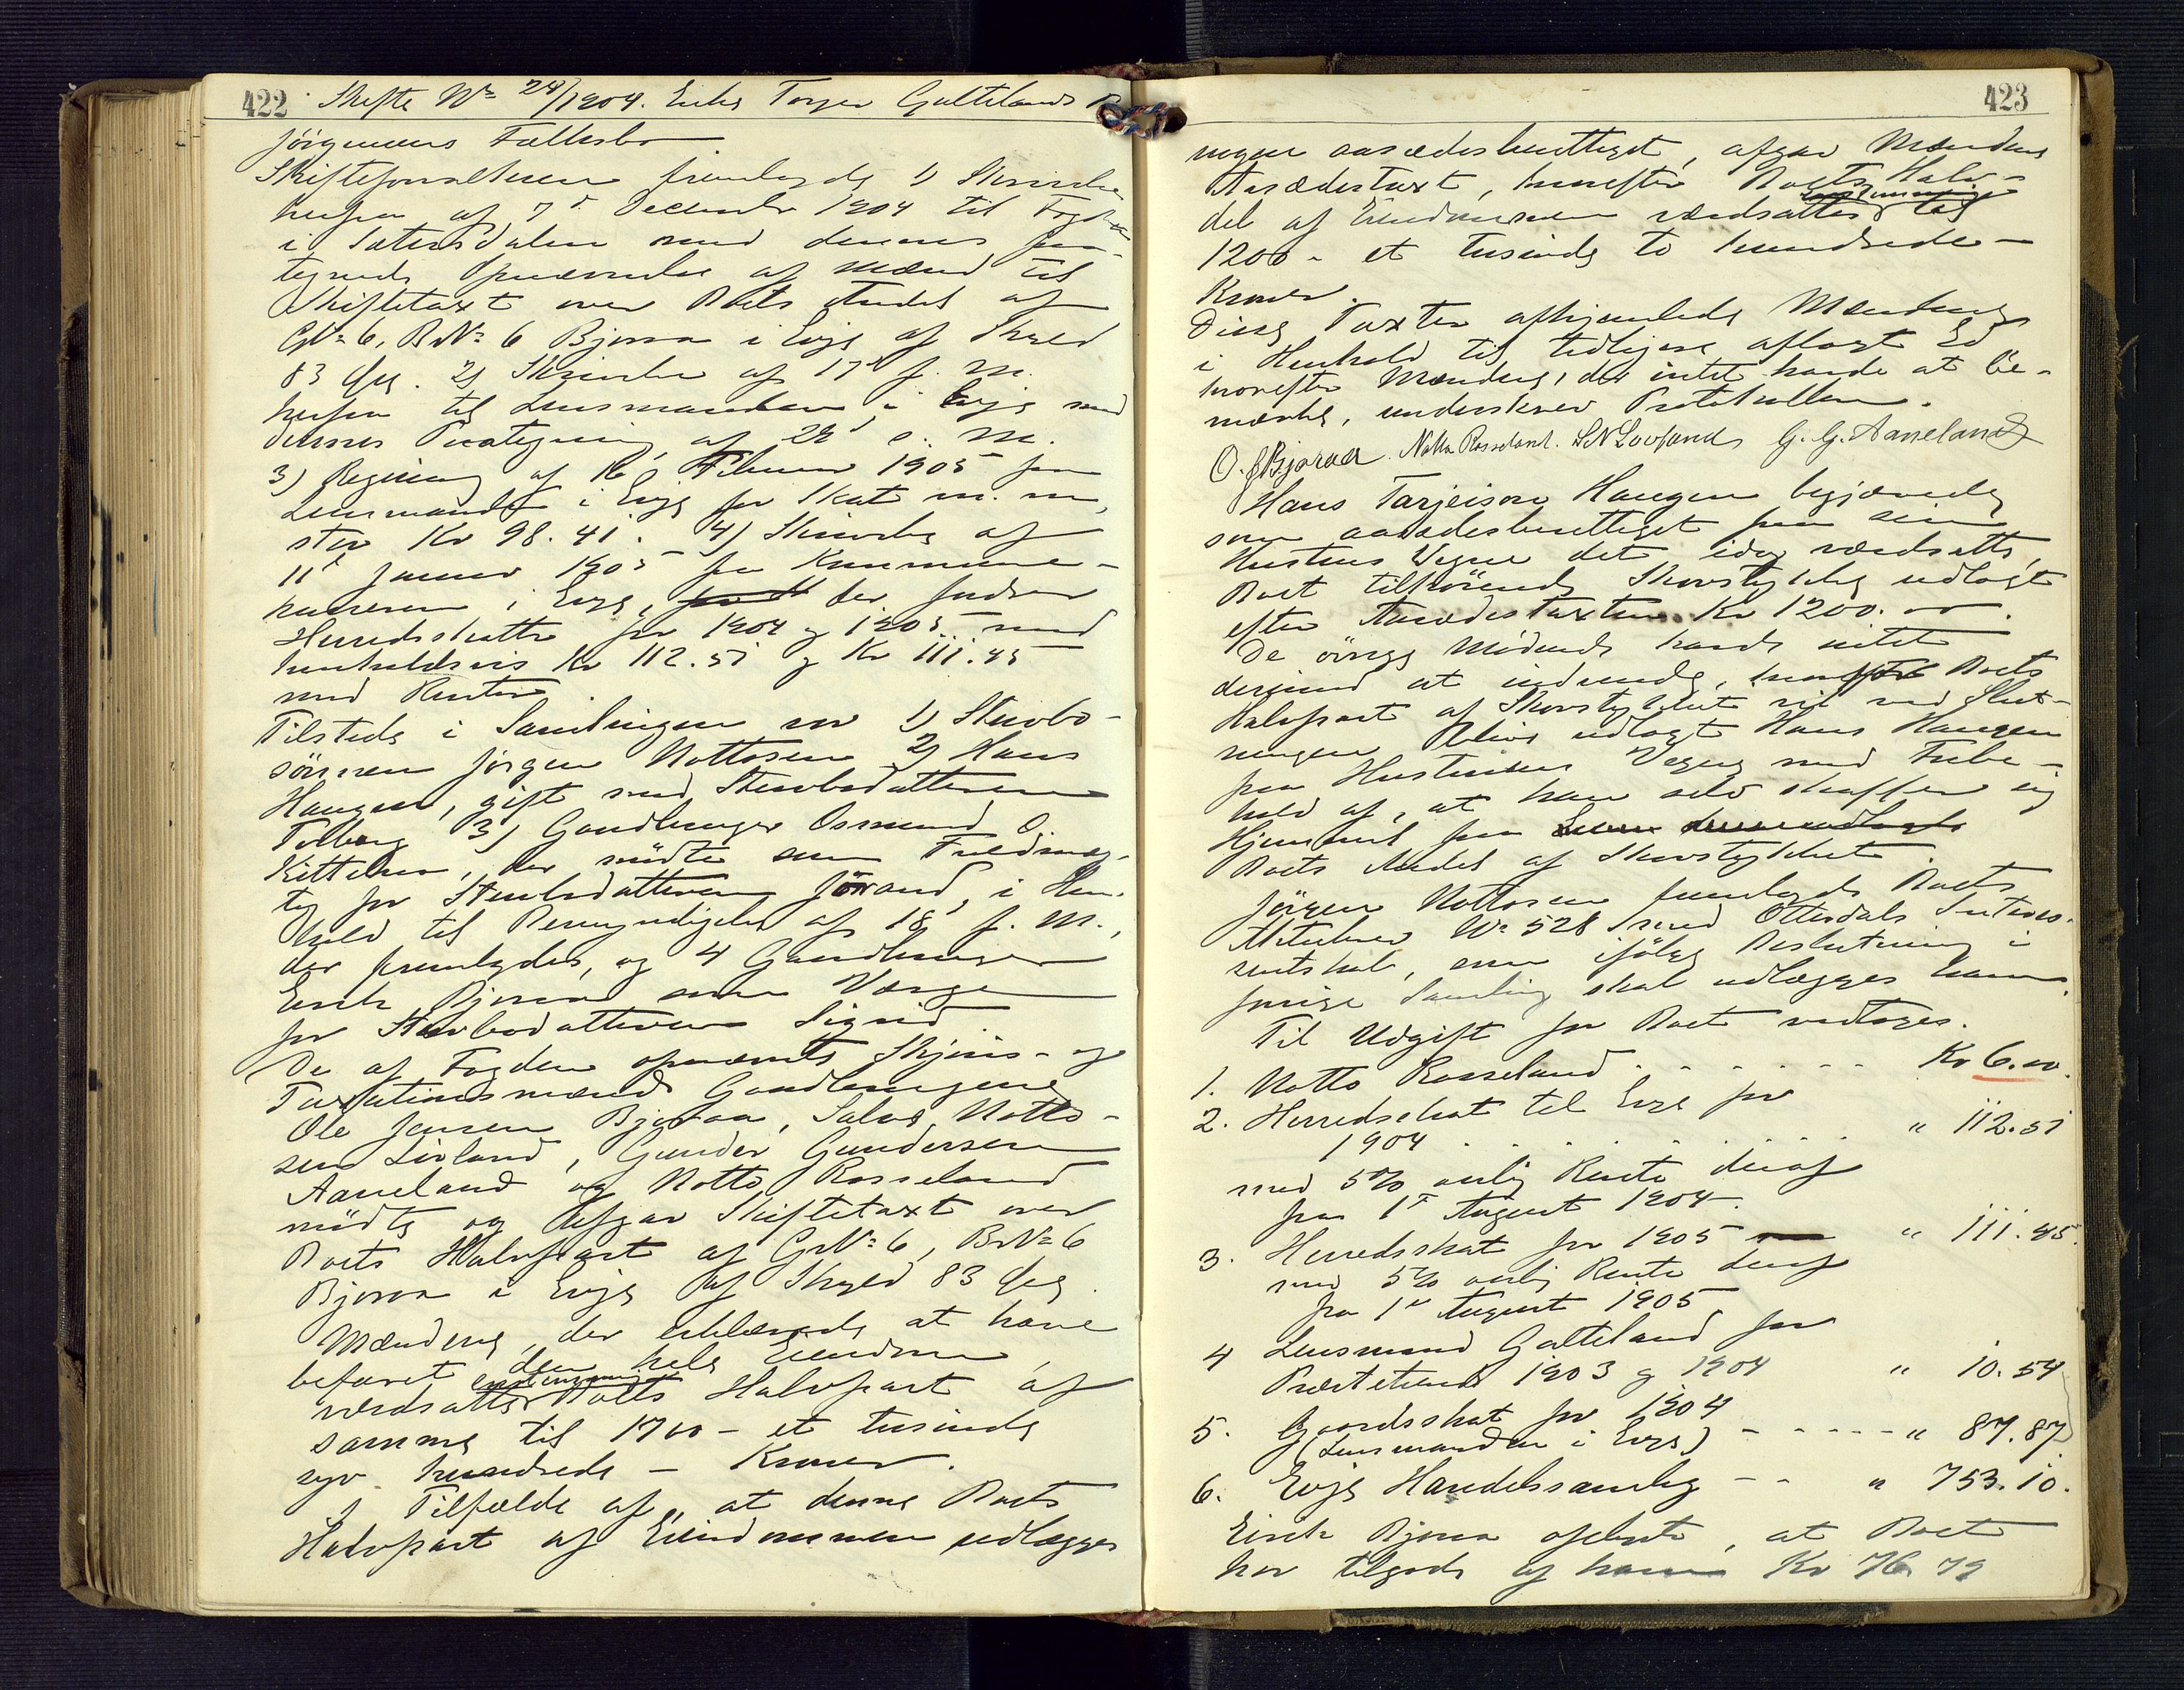 422 Skifte No 24/1904. Enke Torjer Galtelands B
Jörgensens Fællesbo
Skifteforvalteren fremlagde 1) Skrivelse
herfra af 7de December 1904 til Fogden
i Sætersdalen med dennes paa-
tegnede Opnævnelse af Mænd til
Skiftetaxt over Boets Andel af
GNo 6, BNo 6 Bjoraa i Evje af Skyld
83 Øre. 2) Skrivelse af 17d f. M.
herfra til Lensmanden i Evje med
dennes Paategning af 28d s. M.
3) Regning af 16 Februar 1905 fra
Lensmanden i Evje for Skat m. m.
stor Kr 98.41. 4) Skrivelse af
11d Januar 1905 fra Kommune-
kasseren i Evje, der fordrer
Herredsskatter for 1904 og 1905 med
henholdsvis Kr 112.51 og Kr 111.45
med Renter
Tilstede i Samlingen var 1) Stervbo-
sönnen Jörgen Nottosen 2) Hans
Haugen, gift med Stervbodatteren
Tolborg 3) Gaardbruger Osmund O.
Kittelsen, der mödte som Fuldmæg-
tig for Stervbodatteren Jörand, i Hen-
hold til Bemyndigelse af 18 f. M.,
der fremlagdes, og 4 Gaardbruger
Eirik Bjoraa som Værge
for Stervbodatteren Sigrid.
De af Fogden opnævnte Skjöns- og
Taxationsmænd Gaardbrugerne
Ole Jensen Bjoraa, Salve Notto-
sen Lövland, Gunder Gundersen
Aaneland og Notto Rosseland
mödte og afgav Skiftetaxt over
Boets Halvpart af GrNo 6, BrNo 6
Bjoraa i Evje af Skyld 83 Øre
Mændene, der erklærede at have
befaret den hele Eiendom,
enstemmig
værdsatte Boets Halvpart af
samme til 1700 - et tusinde
syv hundrede - Kroner.
I Tilfælde af, at denne Boets
Halvpart af Eiendommen udlægges
423
nogen aasædesberettiget, afgav Mændene
Aasædestaxt, hvorefter Boets Halv-
enstemmig
del af Eiendommen værdsattes til
1200 - et tusinde to hundrede -
Kroner.
Disse Taxter afhjemlede Mændene
i Henhold til tidligere aflagt Ed
hvorefter Mændene, der intet havde at be-
mærke, underskrev Protokollen.
O. J Bjoraa. Notto Rosseland. S N Lövland G. G. Aaneland
Hans Tarjeisen Haugen begjærede
som aasædesberettiget paa sin
Hustrus Vegne det idag værdsatte,
Boet tilhörende Skovstykke udlagt
efter Aasædestaxten Kr 1200.00.
De övrige Mödende havde intet
derimod at indvende, hvorefter Boets
Halvpart af Skovstykket vil ved Slut-
ningen blive udlagt Hans Haugen
paa Hustruens Vegne med Forbe-
hold af, at han selv skaffer sig
Hjemmel paa
Boets Andel af Skovstykket.
Jörgen Nottosen fremlagde Boets
Aktiebrev No 528 med Otterdals Interes-
sentskab, som ifölge Beslutning i
forrige Samling skal udlægges ham.
Til Udgift for Boet vedtoges.
1. Notto Rosseland . . . . . . Kr 6.00.
2. Herredsskat til Evje for
1904 . . . . . . . . " 112.51
med 5% aarlig Rente deraf
fra 1ste August 1904.
3. Herredsskat for 1905 " 111.45.
med 5% aarlig Rente deraf
fra 1ste August 1905
4 Lensmand Galteland for
Prestetiende 1903 og 1904 " 10.54
5. Gaardsskat for 1904
(Lensmanden i Evje) - - - - - " 87.87
6. Evje Handelssamlag - - " 753.10.
Eirik Bjoraa oplyste, at Boet
har tilgode af ham Kr 76 79